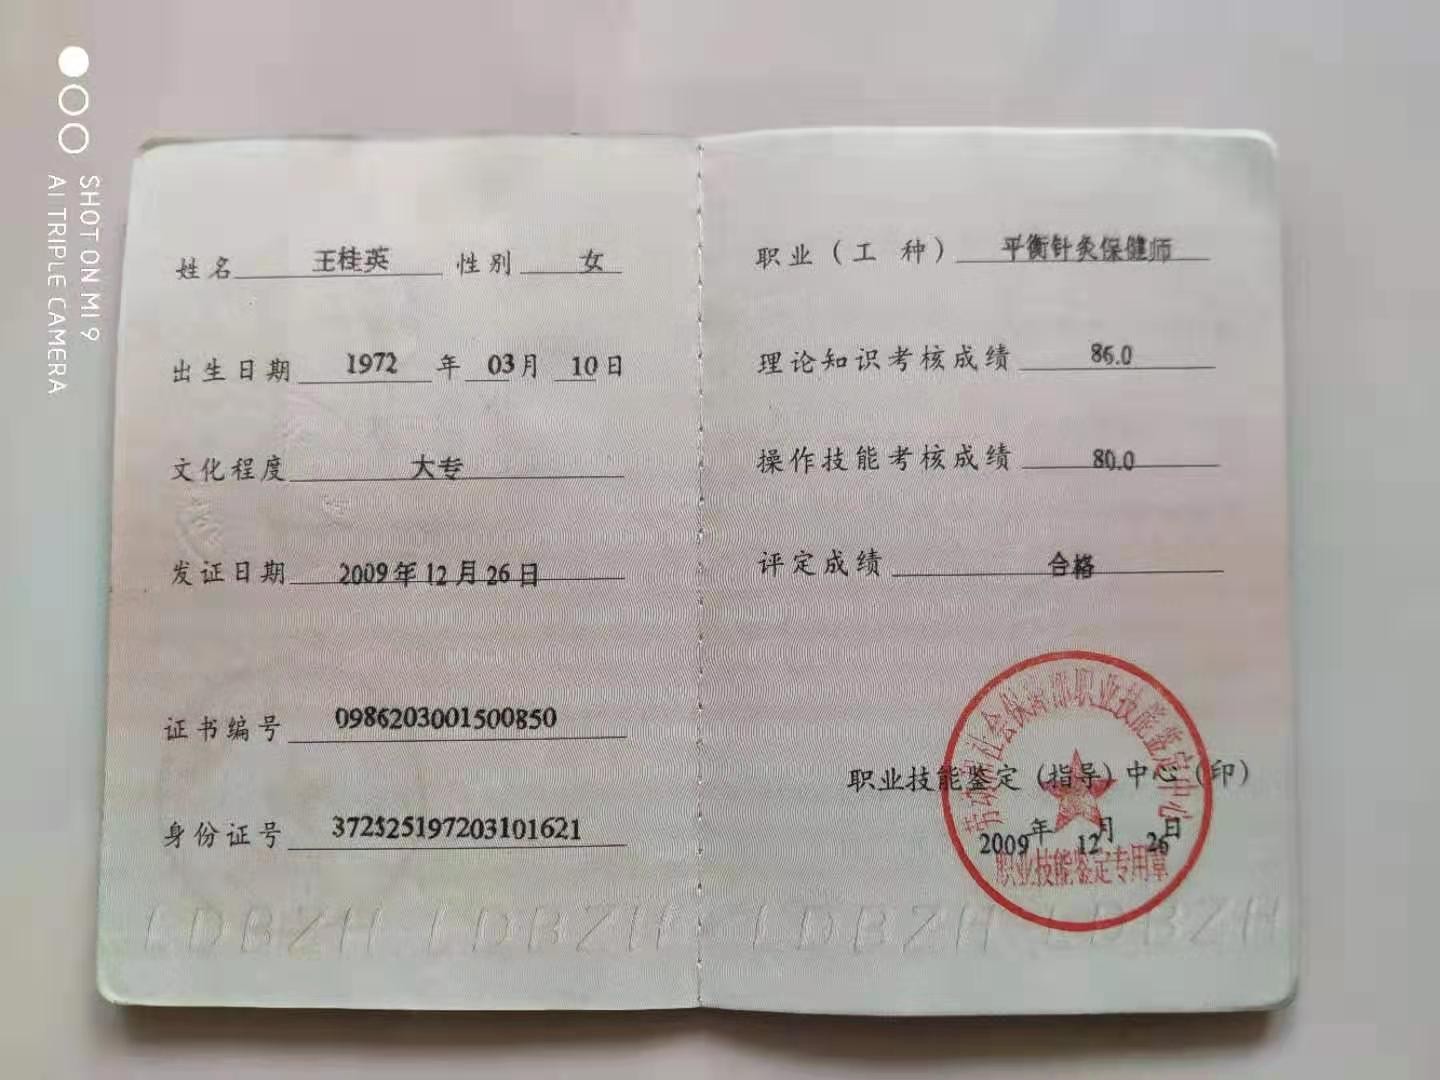 SHOT ON MI 9
AI TRIPLE CAMERA
姓名 王桂英 性别 女
出生日期 1972 年 03 月 10 日
文化程度 大专
发证日期 2009年12月26日
证书编号 0986203001500850
身份证号 372525197203101621
LDBZH LDBZH
职业（工 种） 平衡针灸保健师
理论知识考核成绩 86.0
操作技能考核成绩 80.0
评定成绩 合格
劳动和社会保障部职业技能鉴定中心
职业技能鉴定（指导）中心（印）
2009年 12月 26日
职业技能鉴定专用章
LDBZH LDBZH